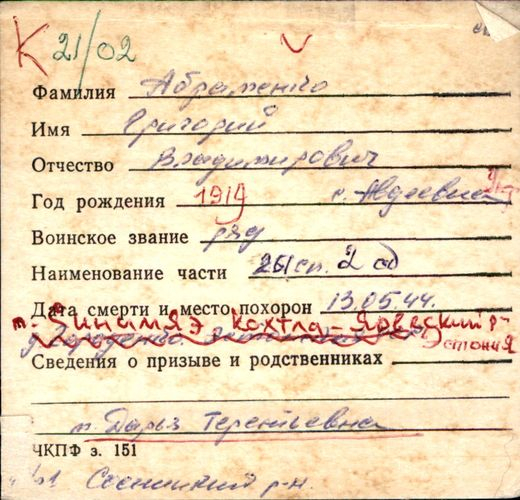 К 21/02
Фамилия Абраменко
Имя Григорий
Отчество Владимирович
Год рождения 1919
Воинское звание ряд
Наименование части 261 сп. 2 сд
Дата смерти и место похорон 13.05.44.
п. Синимяэ Кохтла-Ярвеский р-
Эстония
Сведения о призыве и родственниках
м. Дарья Терентьевна
ЧКПФ з. 151
Сосницкий р-н.